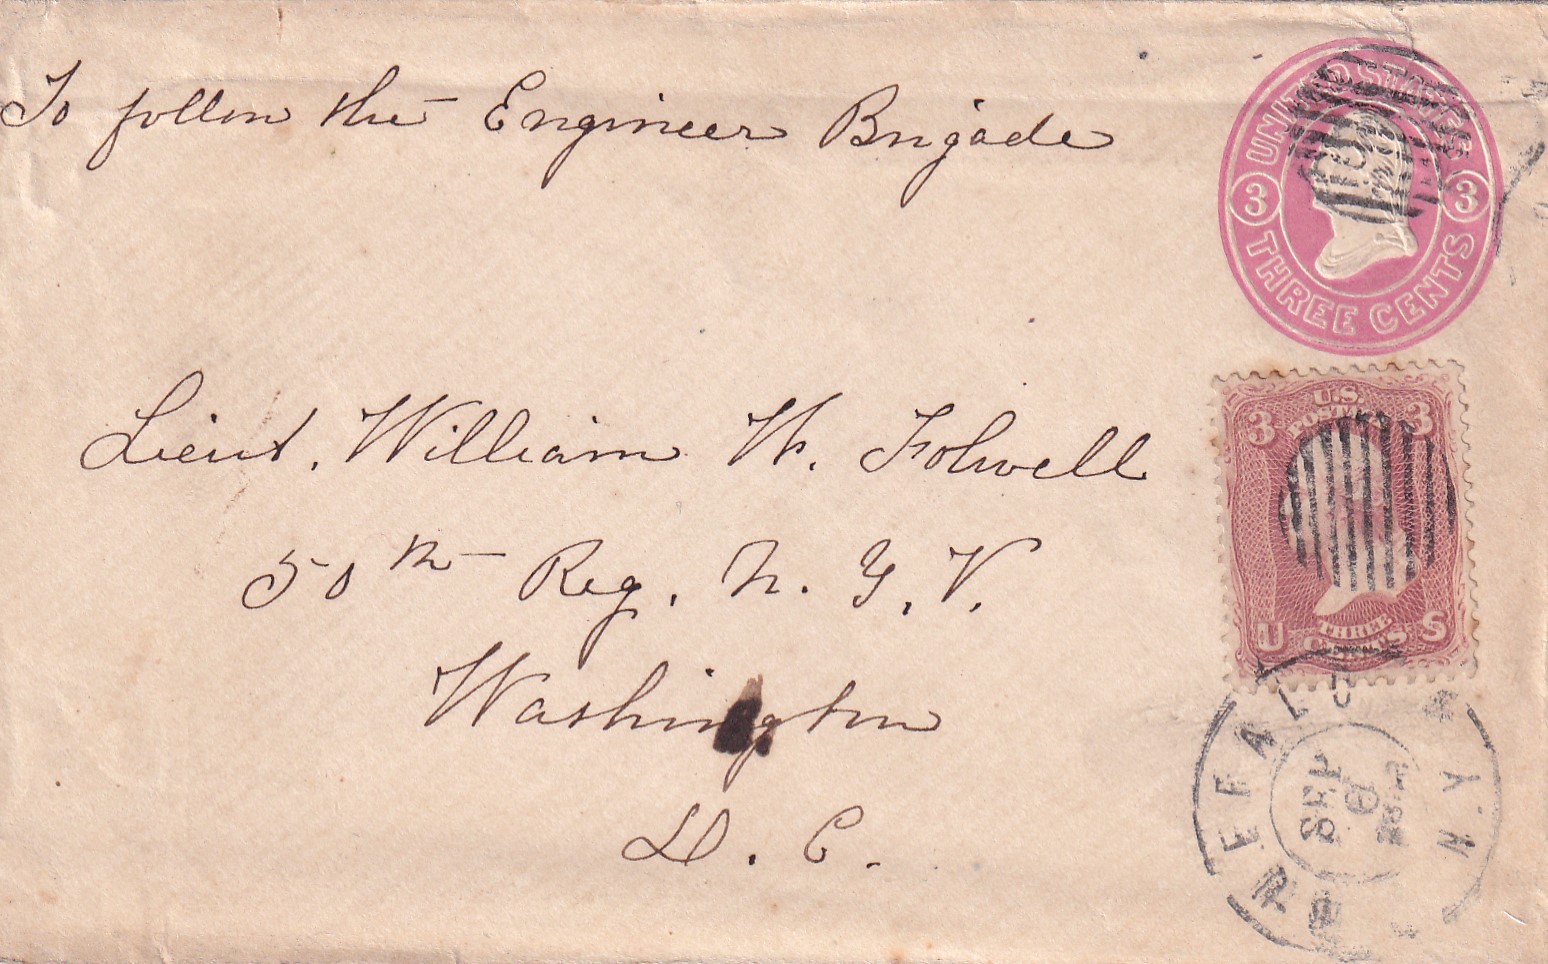 To follow the Engineer Brigade
UNITED STATES
3 3
THREE CENTS
Lieut. William W. Folwell
50th Reg. N. Y. V.
Washington
D. C.
U.S.
POSTAGE
3 3
U S
THREE
CENTS
BUFFALO
N.Y.
SEP
6